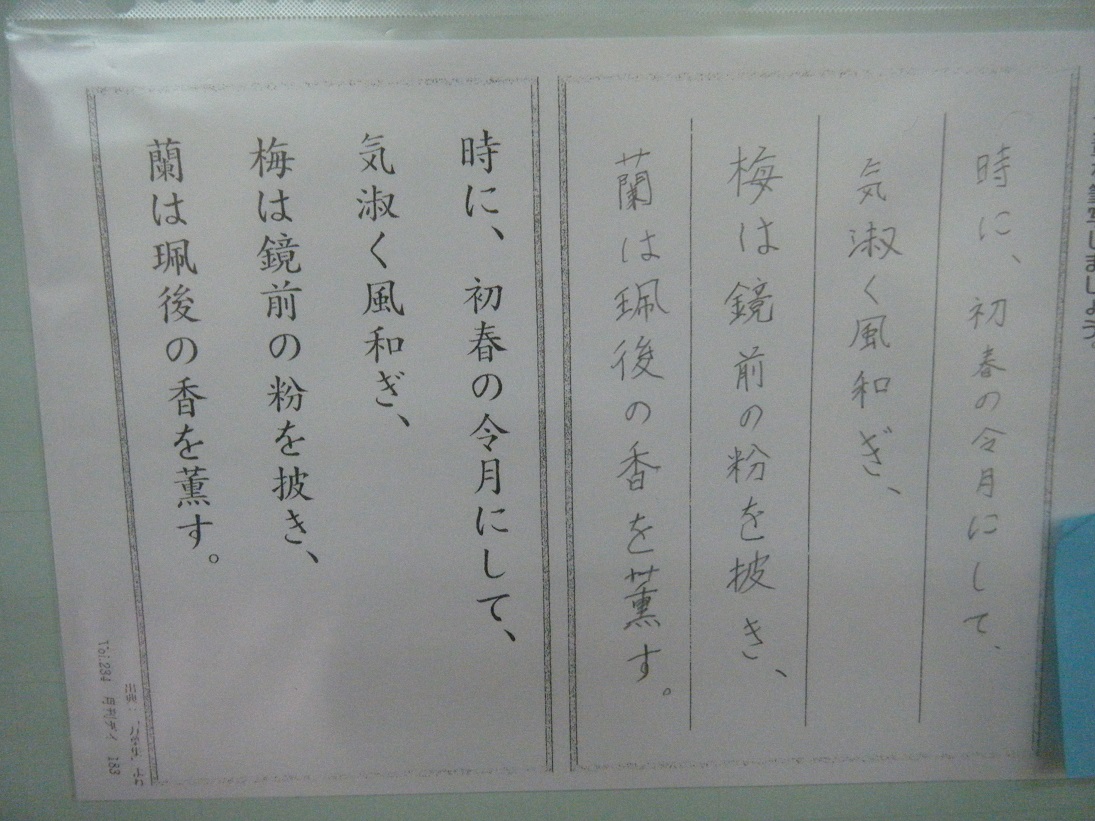 筆写しましょう
時に、初春の令月にして、
気淑く風和ぎ、
梅は鏡前の粉を披き、
蘭は珮後の香を薫す。
時に、初春の令月にして、
気淑く風和ぎ、
梅は鏡前の粉を披き、
蘭は珮後の香を薫す。
Vol.234 月刊デイ 133